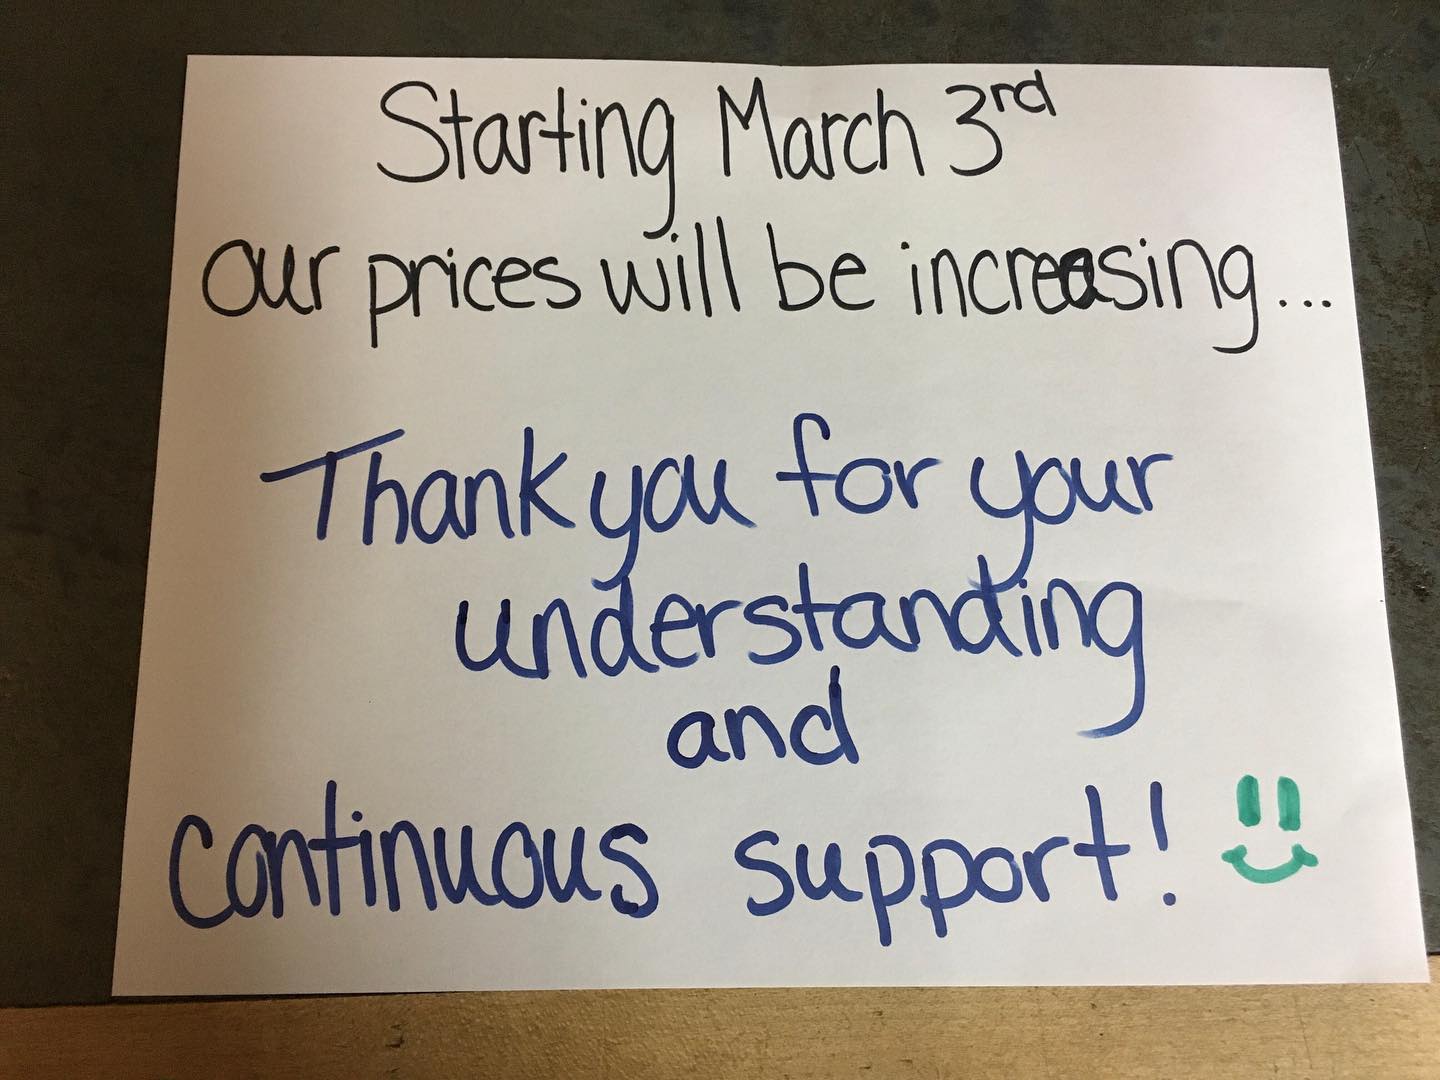 Starting March 3rd
our prices will be increasing...
Thank you for your
understanding
and
continuous support!